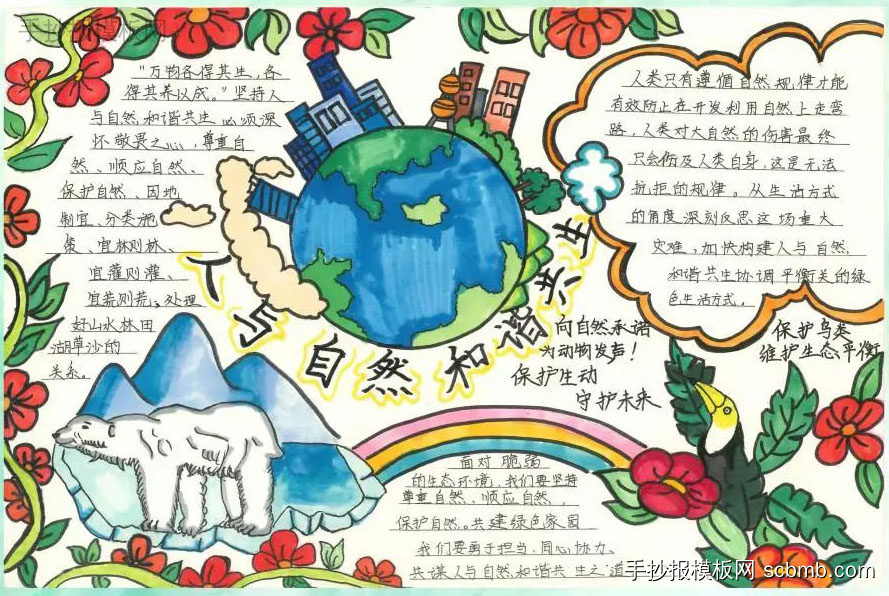 手抄报模板网
"万物各得其生，各
得其养以成。"坚持人
与自然和谐共生，必须深
怀敬畏之心，尊重自
然、顺应自然、
保护自然、因地
制宜、分类施
策、宜林则林、
宜灌则灌、
宜荒则荒、处理
好山水林田
湖草沙的
关系。
人类只有遵循自然规律才能
有效防止在开发利用自然上走弯
路，人类对大自然的伤害最终
只会伤及人类自身，这是无法
抗拒的规律。从生活方式
的角度深刻反思这场重大
灾难，加快构建人与自然，
和谐共生协调平衡关的绿
色生活方式。
人与自然和谐共生
向自然承诺
为动物发声！
保护生动
守护未来
保护鸟类
维护生态平衡
面对脆弱
的生态环境，我们要坚持
尊重自然、顺应自然，
保护自然。共建绿色家园
我们要勇于担当，同心协力、
共谋人与自然和谐共生之道
手抄报模板网 scbmb.com